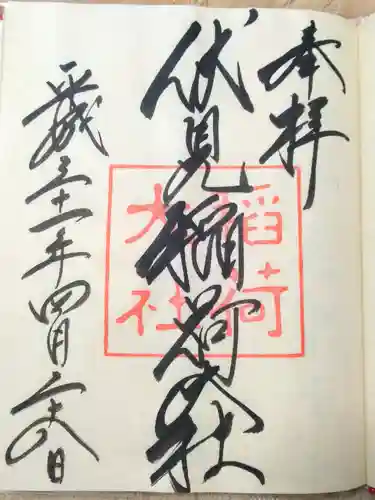 奉拝
伏見稲荷大社
平成三十一年四月二十八日
稲荷
大社